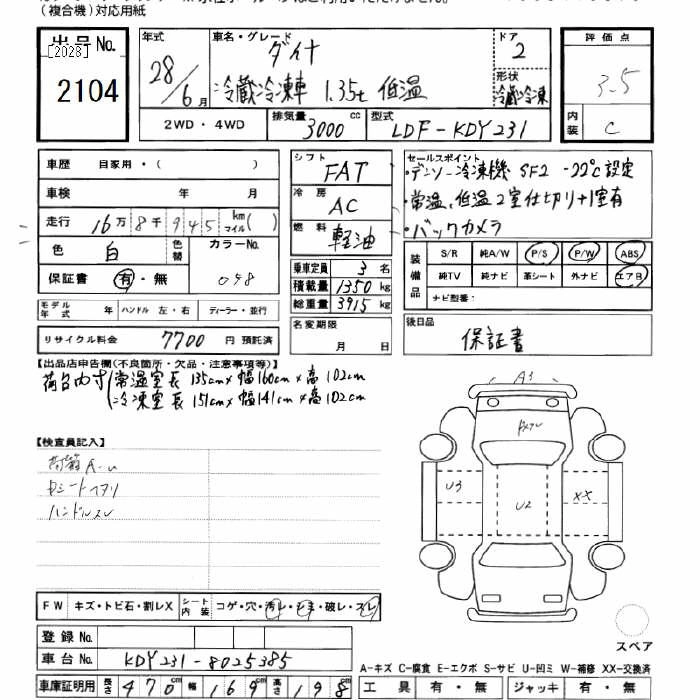 (複合機)対応用紙
出品No.
[2028]
2104
年式 28/6月
車名・グレード ダイナ
冷蔵冷凍車 1.35t 低温
ドア 2
形状 冷蔵冷凍
評価点
3.5
内装 C
2WD・4WD 排気量 3000 cc 型式 LDF-KDY231
車歴 自家用・( )
車検 年 月
走行 16万8千945 km マイル( )
色 白 色替 カラーNo. 058
保証書 有・無
シフト FAT
冷房 AC
燃料 軽油
乗車定員 3名
積載量 1350 kg
総重量 3915 kg
セールスポイント
・デンソー冷凍機 SF2 -22℃設定
・常温、低温2室仕切り+1室有
・バックカメラ
装備品 S/R 純A/W P/S P/W ABS
純TV 純ナビ 革シート 外ナビ エアB
ナビ型番:
モデル年式 年 ハンドル 左・右 ディーラー・並行
リサイクル料金 7700 円 預託済
名変期限 月 日
後日品 保証書
【出品店申告欄(不良箇所・欠品・注意事項等)】
荷台内寸 常温室 長 135cm×幅160cm×高102cm
冷凍室 長 151cm×幅141cm×高102cm
【検査員記入】
荷箱A-U
Dシートヘタリ
ハンドルスレ
A1
U3
U2
XX
FW キズ・トビ石・割レX シート内装 コゲ・穴・汚レ・シミ・破レ・スレ
登録No.
車台No. KDY231-8025385
車庫証明用 長さ 470cm 幅 169cm 高さ 198cm
スペア
A-キズ C-腐食 E-エクボ S-サビ U-凹ミ W-補修 XX-交換済
工具 有・無 ジャッキ 有・無